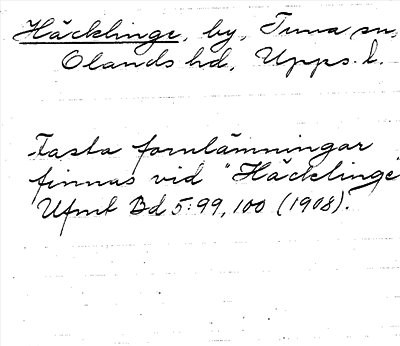 Häcklinge, by, Tuna sn,
Olands hd, Upps. l.
Fasta fornlämningar
finnas vid "Häcklinge"
Ufmt Bd 5:99, 100 (1908).